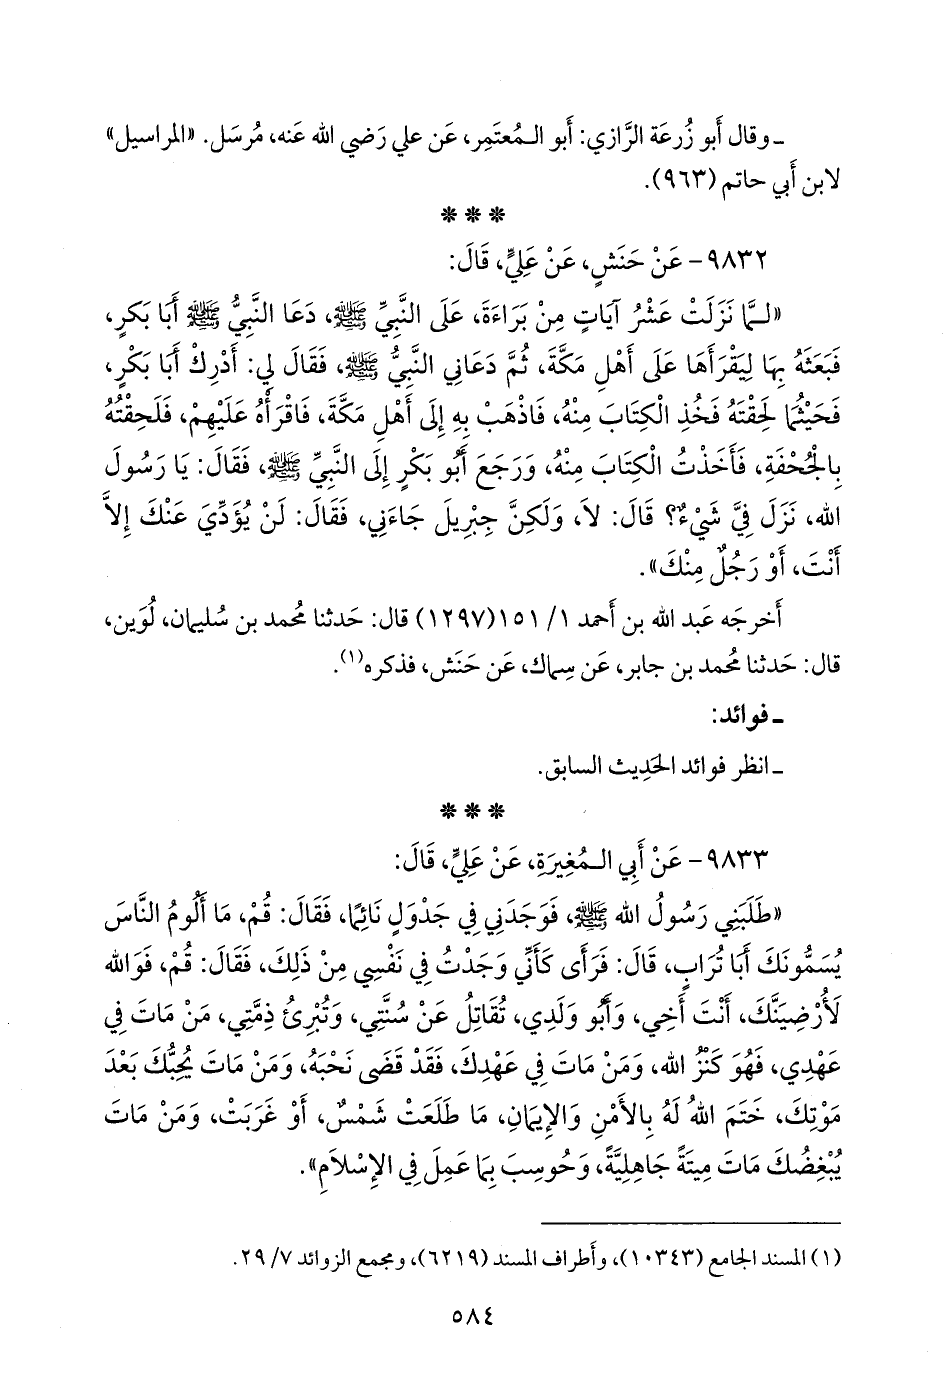 ـ وقال أَبو زُرعَة الرَّازي: أَبو الـمُعتَمِر، عَن علي رَضي الله عَنه، مُرسَل. «المراسيل»
لابن أَبي حاتم (٩٦٣).
* * *
٩٨٣٢- عَنْ حَنَشٍ، عَنْ عَلِيٍّ، قَالَ:
«لـمَّا نَزَلَتْ عَشْرُ آيَاتٍ مِنْ بَرَاءَةَ، عَلَى النَّبِيِّ ﷺ، دَعَا النَّبِيُّ ﷺ أَبَا بَكرٍ،
فَبَعَثَهُ بِهَا لِيَقْرَأَهَا عَلَى أَهْلِ مَكَّةَ، ثُمَّ دَعَانِي النَّبِيُّ ﷺ، فَقَالَ لِي: أَدْرِكْ أَبَا بَكْرٍ،
فَحَيْثُمَا لَحِقْتَهُ فَخُذِ الْكِتَابَ مِنْهُ، فَاذْهَبْ بِهِ إِلَى أَهْلِ مَكَّةَ، فَاقْرَأْهُ عَلَيْهِمْ، فَلَحِقْتُهُ
بِالجُحْفَةِ، فَأَخَذْتُ الْكِتَابَ مِنْهُ، وَرَجَعَ أَبُو بَكْرٍ إِلَى النَّبِيِّ ﷺ، فَقَالَ: يَا رَسُولَ
الله، نَزَلَ فِيَّ شَيْءٌ؟ قَالَ: لاَ، وَلَكِنَّ جِبْرِيلَ جَاءَنِي، فَقَالَ: لَنْ يُؤَدِّيَ عَنْكَ إِلاَّ
أَنْتَ، أَوْ رَجُلٌ مِنْكَ».
أَخرجَه عَبد الله بن أَحمد ١/ ١٥١(١٢٩٧) قال: حَدثنا مُحمد بن سُليمان، لُوَين،
قال: حَدثنا مُحمد بن جابر، عَن سِماك، عَن حَنَش، فذكره(١).
ـ فوائد:
ـ انظر فوائد الحَدِيث السابق.
* * *
٩٨٣٣- عَنْ أَبِي الـمُغِيرَةِ، عَنْ عَلِيٍّ، قَالَ:
«طَلَبَنِي رَسُولُ الله ﷺ، فَوَجَدَنِي فِي جَدْوَلٍ نَائِمًا، فَقَالَ: قُمْ، مَا أَلُومُ النَّاسَ
يُسَمُّونَكَ أَبَا تُرَابٍ، قَالَ: فَرَأَى كَأَنِّي وَجَدْتُ فِي نَفْسِي مِنْ ذَلِكَ، فَقَالَ: قُمْ، فَوَالله
لَأُرْضِيَنَّكَ، أَنْتَ أَخِي، وَأَبُو وَلَدِي، تُقَاتِلُ عَنْ سُنَّتِي، وَتُبْرِئُ ذِمَّتِي، مَنْ مَاتَ فِي
عَهْدِي، فَهُوَ كَنْزُ الله، وَمَنْ مَاتَ فِي عَهْدِكَ، فَقَدْ قَضَى نَحْبَهُ، وَمَنْ مَاتَ يُحِبُّكَ بَعْدَ
مَوْتِكَ، خَتَمَ اللهُ لَهُ بِالأَمْنِ وَالإِيمَانِ، مَا طَلَعَتْ شَمْسٌ، أَوْ غَرَبَتْ، وَمَنْ مَاتَ
يُبْغِضُكَ مَاتَ مِيتَةً جَاهِلِيَّةً، وَحُوسِبَ بِمَا عَمِلَ فِي الإِسْلاَمِ».
(١) المسند الجامع (١٠٣٤٣)، وأطراف المسند (٦٢١٩)، ومجمع الزوائد ٧/ ٢٩.
٥٨٤